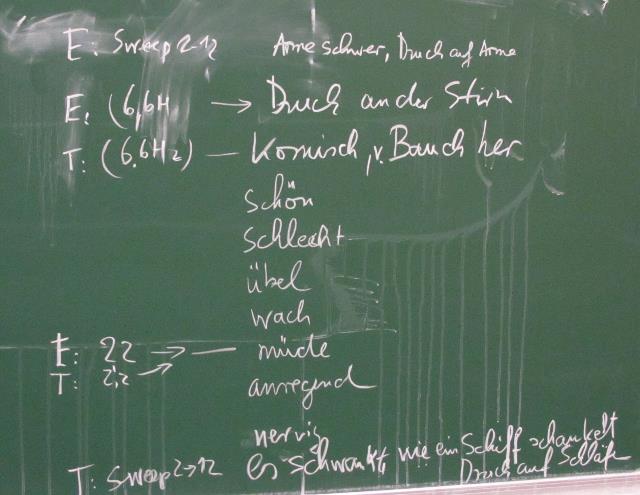 E: Sweep 2-12 Arme schwer, Druck auf Arme
E: (6,6H → Druck an der Stirn
T: (6,6Hz) — Komisch, v. Bauch her
schön
schlecht
übel
wach
E: 22 → — müde
T: 2,2 → anregend
nervig
T: Sweep 2→12 es schwankt, wie ein Schiff schaukelt
Druck auf Schläfe